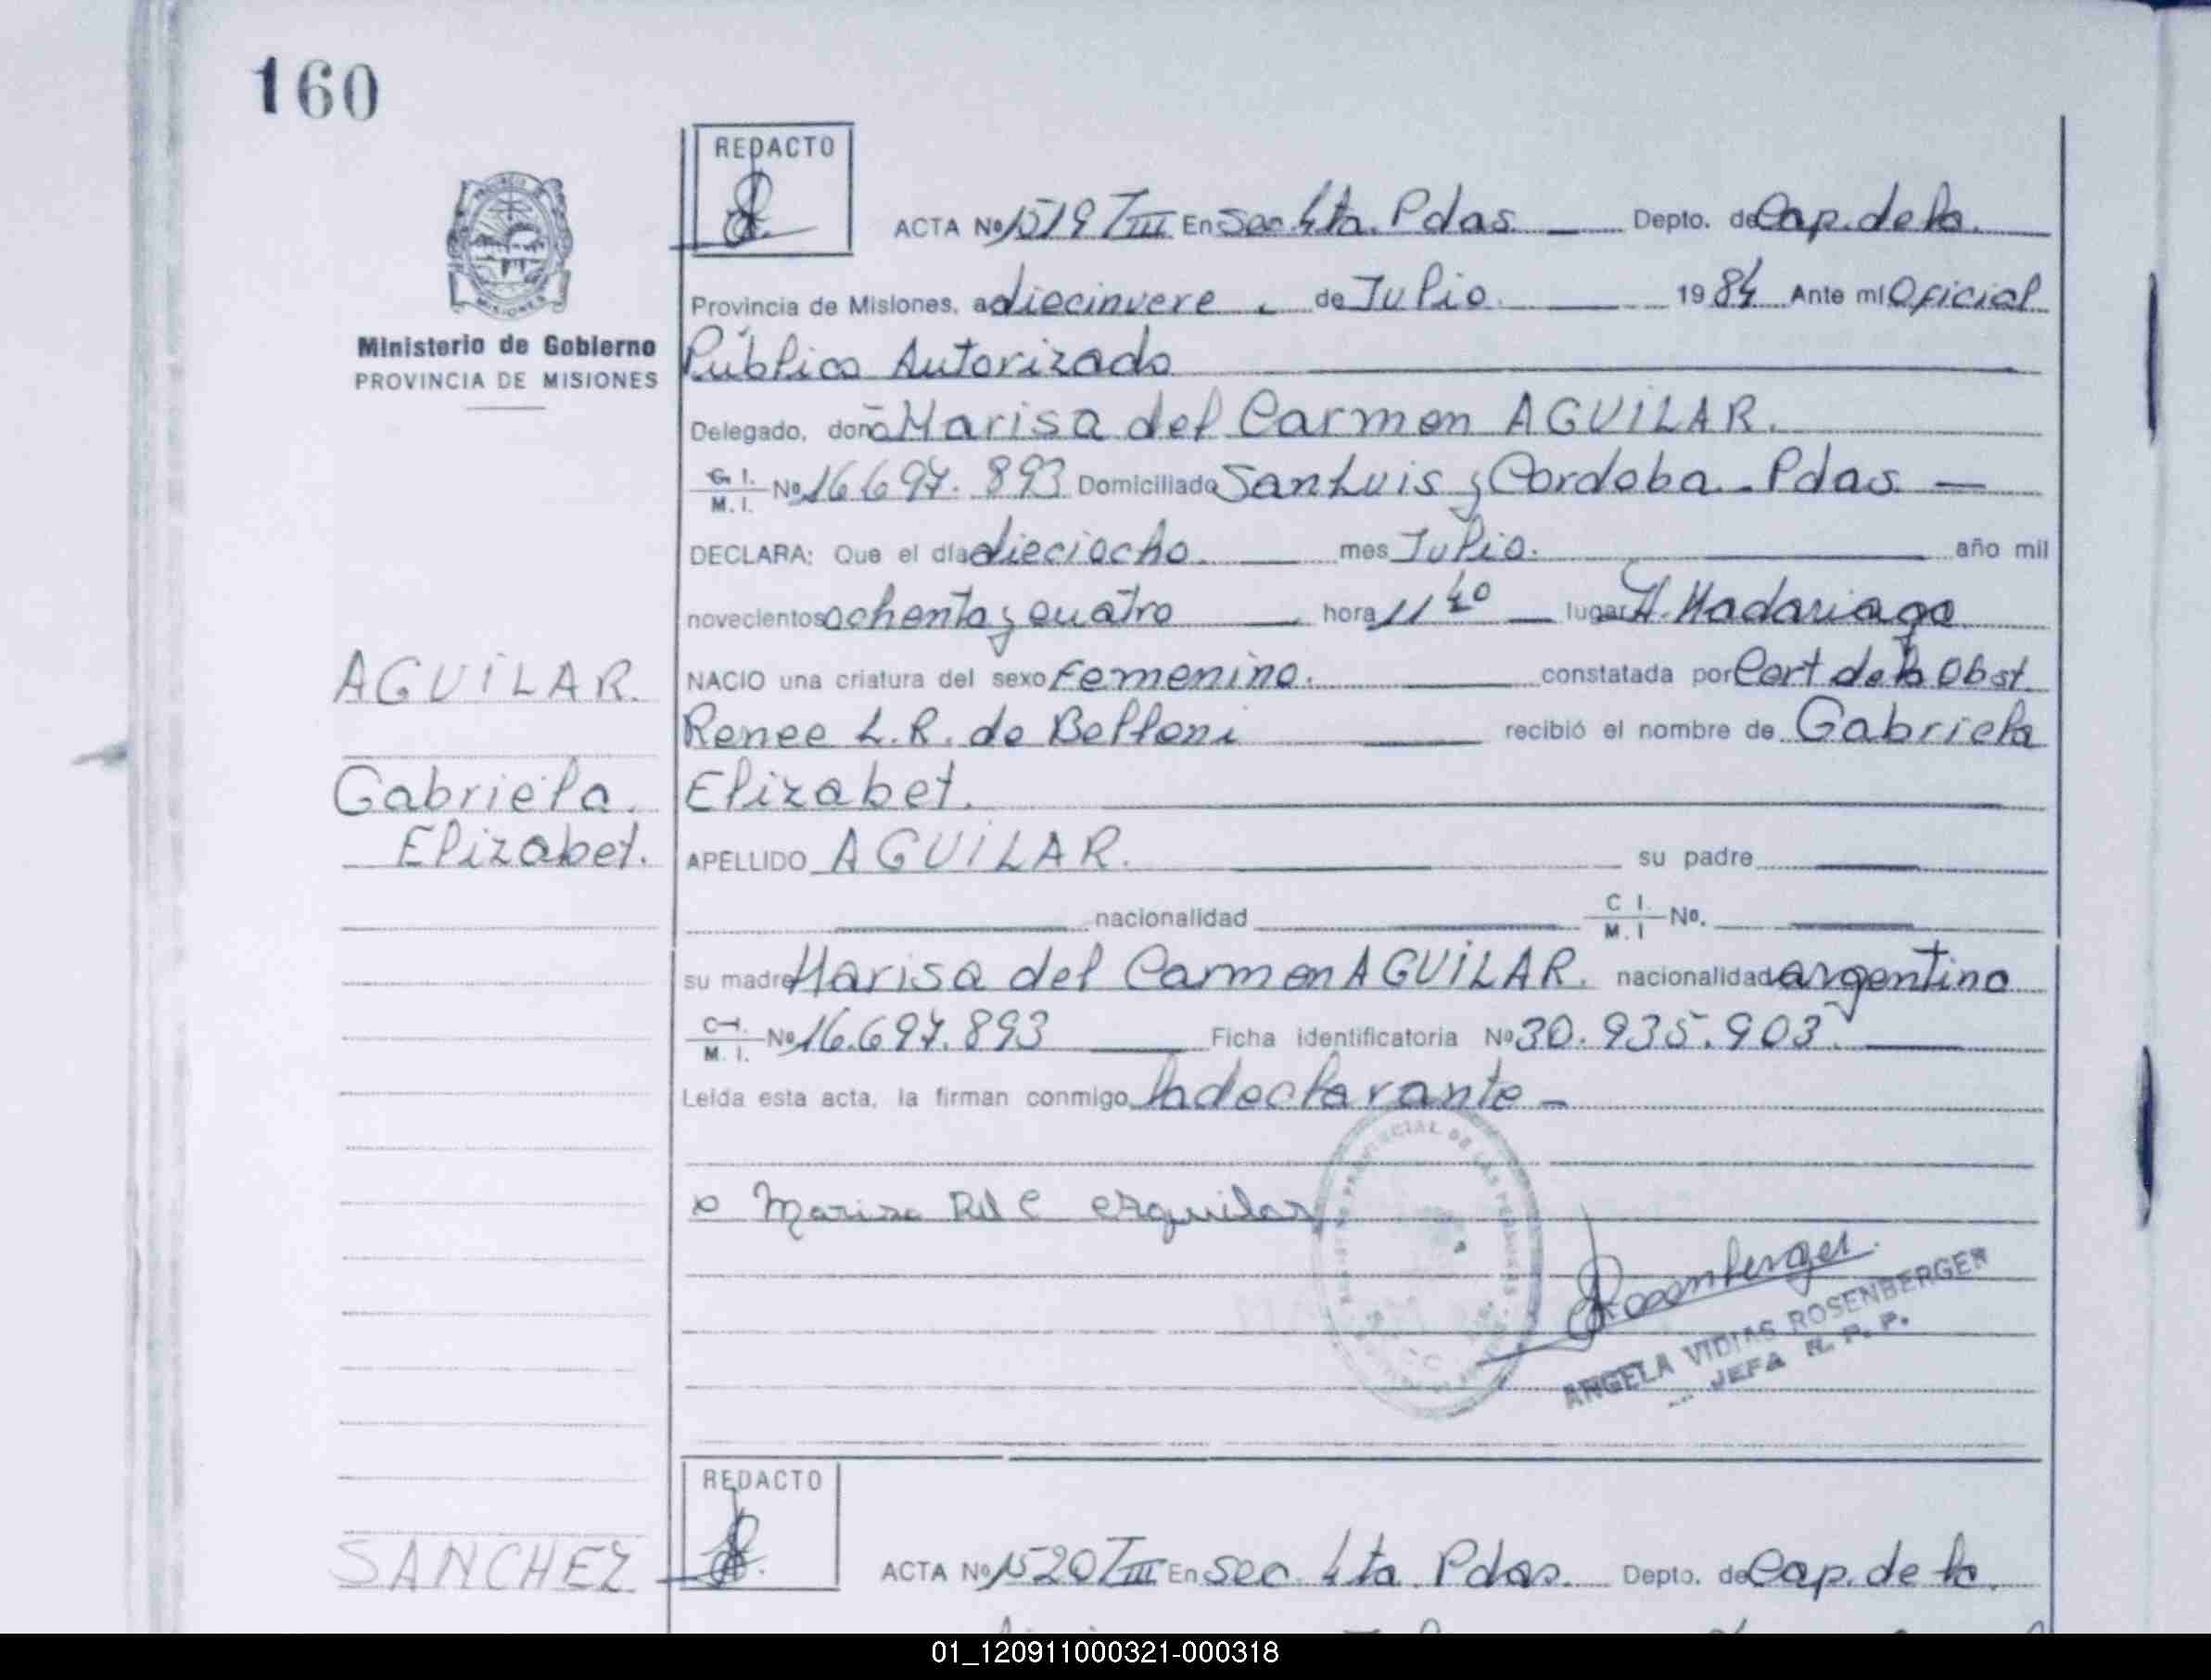 160
REDACTO
ACTA Nº 1519 TIII En Sec. 4ta. Pdas. Depto. de Cap. de la
Provincia de Misiones, a diecinueve de Julio 1984 Ante mí Oficial
Ministerio de Gobierno
PROVINCIA DE MISIONES
Público Autorizado
Delegado, doña Marisa del Carmen AGUILAR.
C. I. M. I. Nº 16.697.893 Domiciliado San Luis y Cordoba - Pdas
DECLARA: Que el día dieciocho mes Julio. año mil
novecientos ochenta y cuatro hora 11 40 lugar H. Madariaga
AGUILAR.
NACIO una criatura del sexo Femenino. constatada por Cert de la Obst.
Renee L. R. de Belloni recibió el nombre de Gabriela
Gabriela.
Elizabet.
Elizabet.
APELLIDO AGUILAR. su padre
nacionalidad C I. M. I Nº.
su madre Marisa del Carmen AGUILAR. nacionalidad argentina
C. I. M. I. Nº 16.697.893 Ficha identificatoria Nº 30.935.903.
Leída esta acta, la firman conmigo la declarante -
PROVINCIAL DE LAS PERSONAS
Marisa Del C Aguilar
Rosenberger
ANGELA VIDIAS ROSENBERGER
JEFA R. P. P.
REDACTO
SANCHEZ
ACTA Nº 1520 TIII En Sec. 4ta. Pdas. Depto. de Cap. de la
01_120911000321-000318